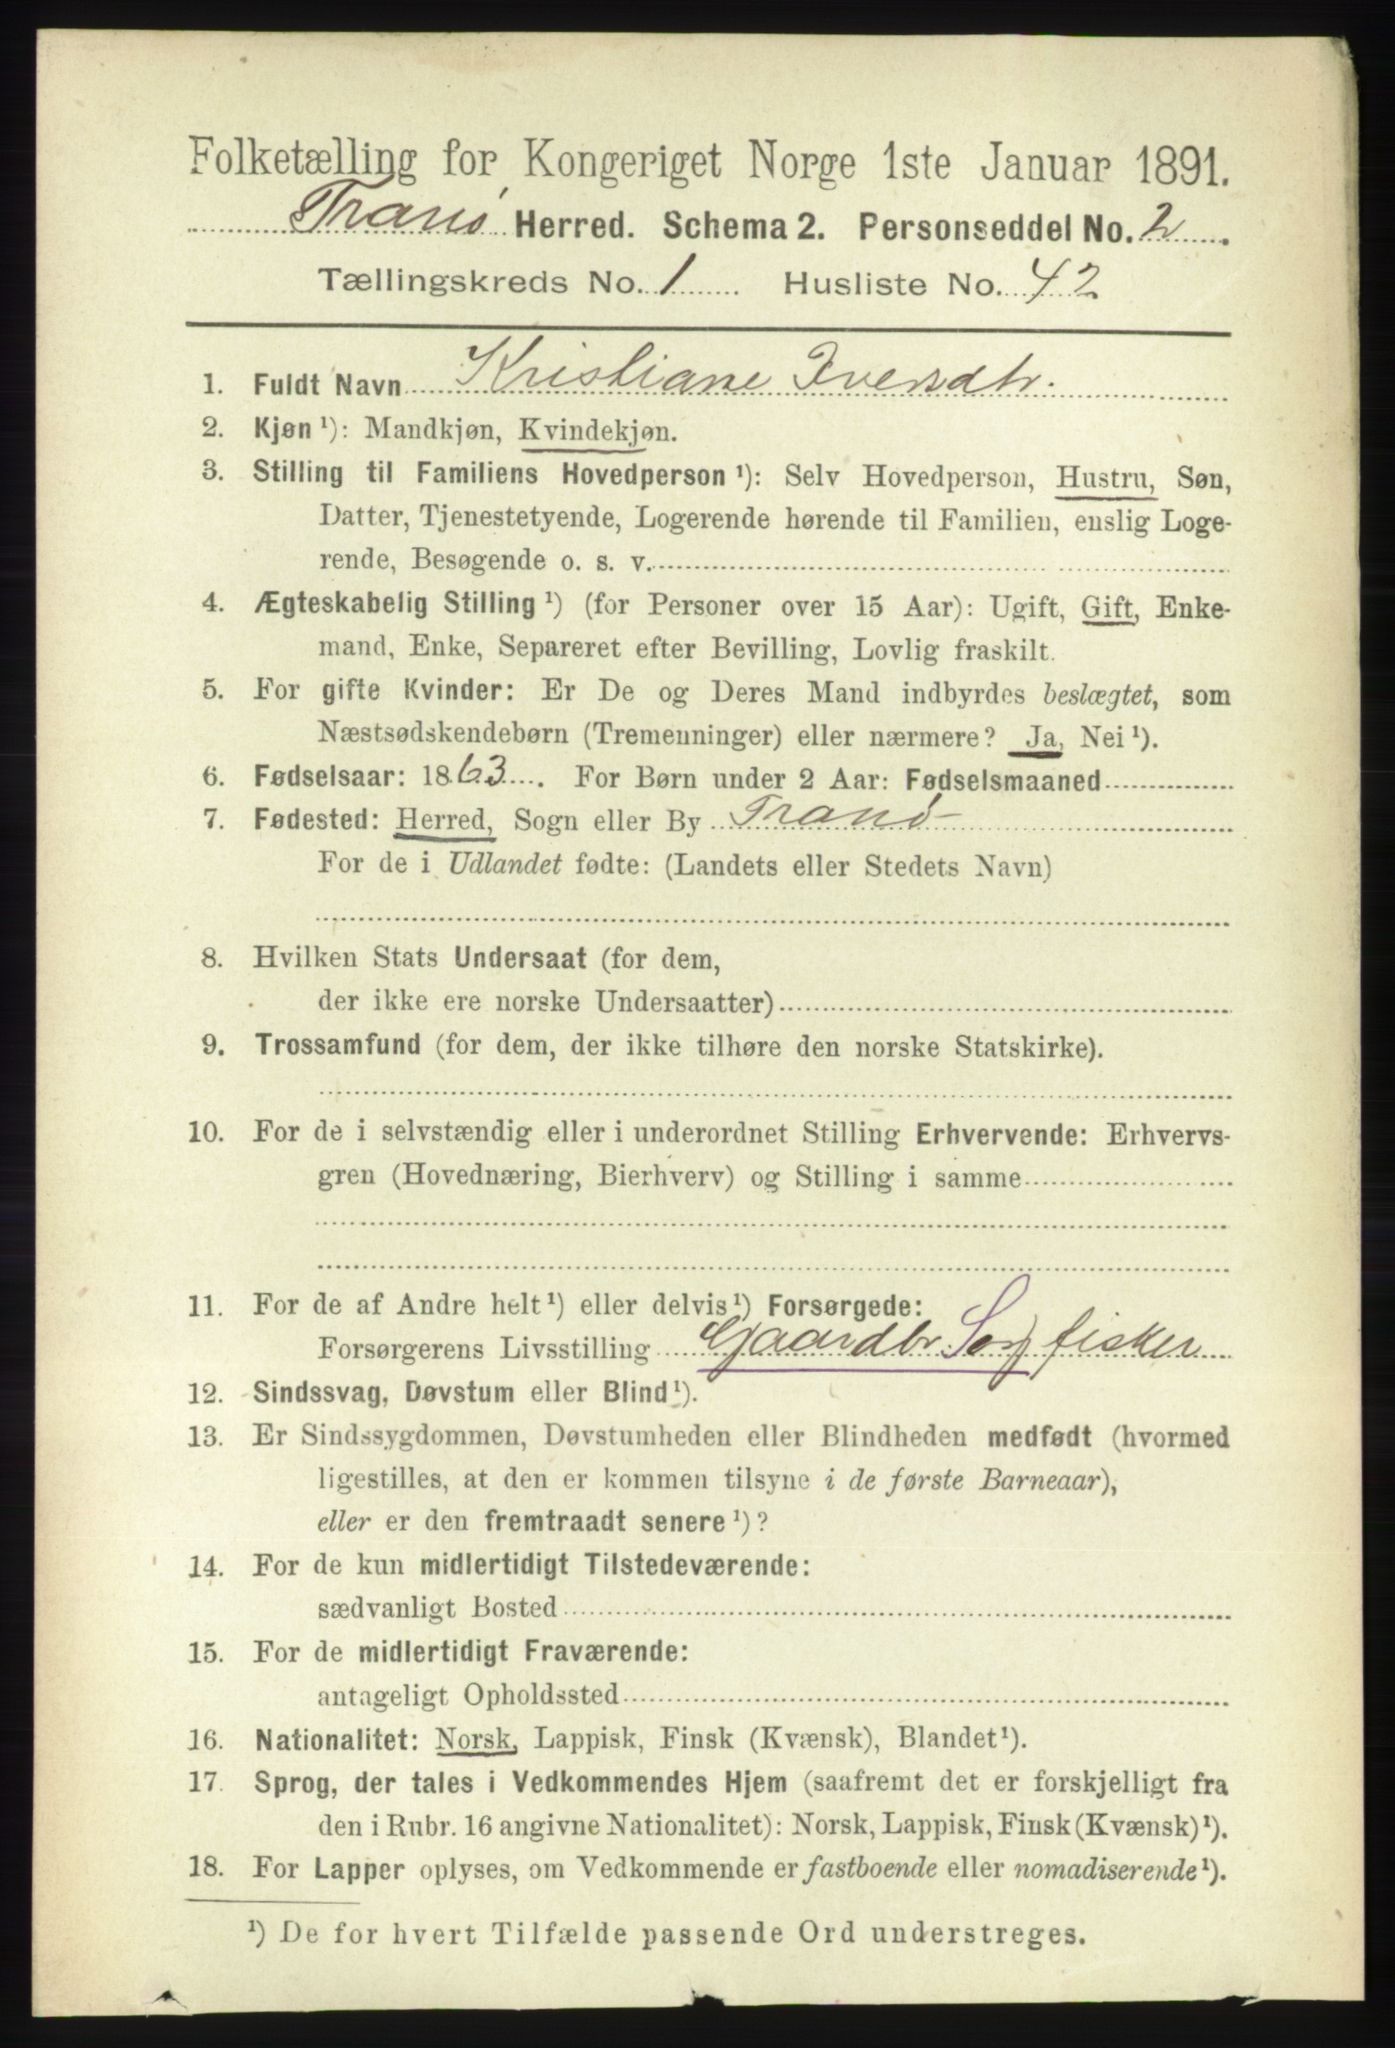 Folketælling for Kongeriget Norge 1ste Januar 1891.
Tranø Herred. Schema 2. Personseddel No. 2.
Tællingskreds No. 1 Husliste No. 42
1. Fuldt Navn Kristiane Iversdtr.
2. Kjøn ¹): Mandkjøn, Kvindekjøn.
3. Stilling til Familiens Hovedperson ¹): Selv Hovedperson, Hustru, Søn,
Datter, Tjenestetyende, Logerende hørende til Familien, enslig Loge-
rende, Besøgende o. s. v.
4. Ægteskabelig Stilling ¹) (for Personer over 15 Aar): Ugift, Gift, Enke-
mand, Enke, Separeret efter Bevilling, Lovlig fraskilt.
5. For gifte Kvinder: Er De og Deres Mand indbyrdes beslægtet, som
Næstsødskendebørn (Tremenninger) eller nærmere? Ja, Nei ¹).
6. Fødselsaar: 1863. For Børn under 2 Aar: Fødselsmaaned
7. Fødested: Herred, Sogn eller By Tranø
For de i Udlandet fødte: (Landets eller Stedets Navn)
8. Hvilken Stats Undersaat (for dem,
der ikke ere norske Undersaatter)
9. Trossamfund (for dem, der ikke tilhøre den norske Statskirke).
10. For de i selvstændig eller i underordnet Stilling Erhvervende: Erhvervs-
gren (Hovednæring, Bierhverv) og Stilling i samme
11. For de af Andre helt ¹) eller delvis ¹) Forsørgede:
Forsørgerens Livsstilling Gaardbr fisker
12. Sindssvag, Døvstum eller Blind ¹).
13. Er Sindssygdommen, Døvstumheden eller Blindheden medfødt (hvormed
ligestilles, at den er kommen tilsyne i de første Barneaar),
eller er den fremtraadt senere ¹)?
14. For de kun midlertidigt Tilstedeværende:
sædvanligt Bosted
15. For de midlertidigt Fraværende:
antageligt Opholdssted
16. Nationalitet: Norsk, Lappisk, Finsk (Kvænsk), Blandet ¹).
17. Sprog, der tales i Vedkommendes Hjem (saafremt det er forskjelligt fra
den i Rubr. 16 angivne Nationalitet): Norsk, Lappisk, Finsk (Kvænsk) ¹).
18. For Lapper oplyses, om Vedkommende er fastboende eller nomadiserende ¹).
¹) De for hvert Tilfælde passende Ord understreges.